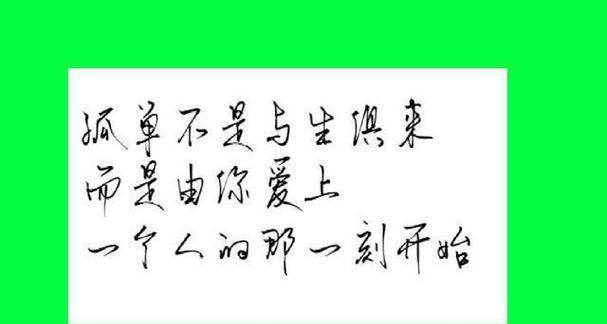 孤单不是与生俱来
而是由你爱上
一个人的那一刻开始